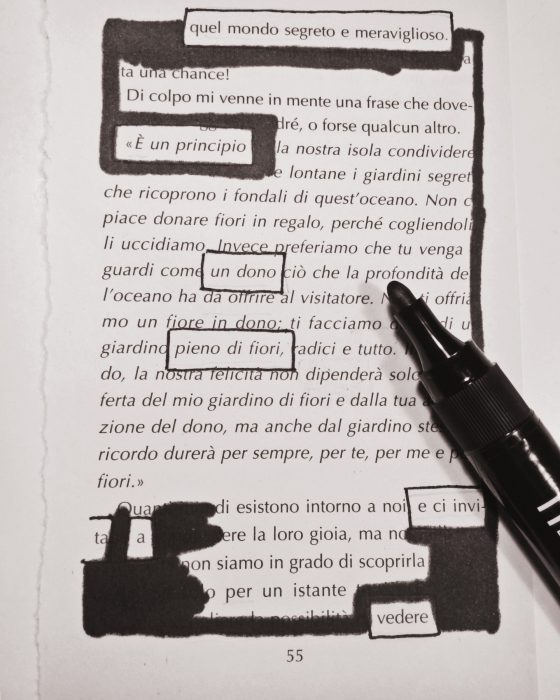 quel mondo segreto e meraviglioso.
ta una chance!
Di colpo mi venne in mente una frase che dove-
dré, o forse qualcun altro.
«È un principio la nostra isola condividere
e lontane i giardini segret
che ricoprono i fondali di quest'oceano. Non c
piace donare fiori in regalo, perché cogliendoli
li uccidiamo. Invece preferiamo che tu venga
guardi come un dono ciò che la profondità de
l'oceano ha da offrire al visitatore. ti offria
mo un fiore in dono; ti facciamo di u
giardino pieno di fiori, radici e tutto.
do, la nostra felicità non dipenderà solo
ferta del mio giardino di fiori e dalla tua
zione del dono, ma anche dal giardino
ricordo durerà per sempre, per te, per me e
fiori.»
di esistono intorno a noi, e ci invi-
ta a ere la loro gioia, ma no
non siamo in grado di scoprirla
o per un istante
possibilità vedere
55